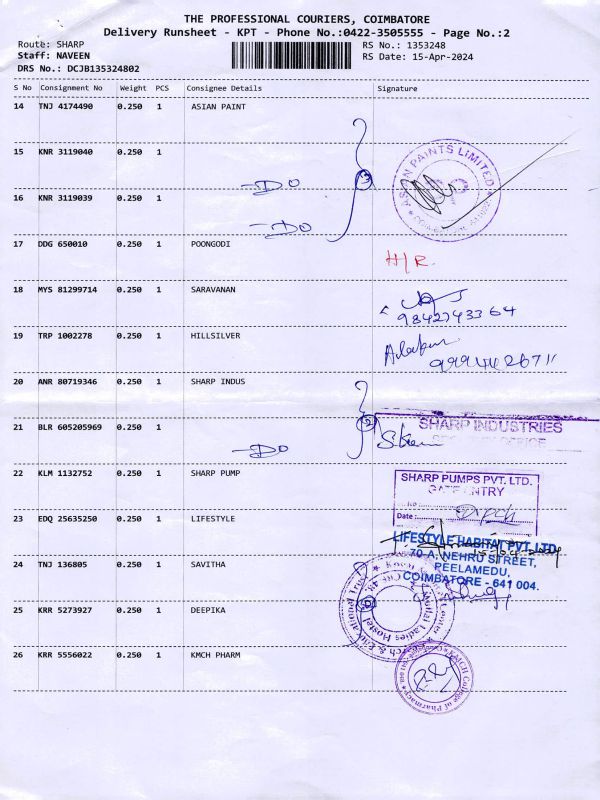 THE PROFESSIONAL COURIERS, COIMBATORE
Delivery Runsheet - KPT - Phone No.:0422-3505555 - Page No.:2
Route: SHARP
RS No.: 1353248
Staff: NAVEEN
RS Date: 15-Apr-2024
DRS No.: DCJB135324802
S No Consignment No Weight PCS Consignee Details Signature
14 TNJ 4174490 0.250 1 ASIAN PAINT
15 KNR 3119040 0.250 1
ASIAN PAINTS LIMITED
3
-DO
16 KNR 3119039 0.250 1
-DO
17 DDG 650010 0.250 1 POONGODI
H/R
18 MYS 81299714 0.250 1 SARAVANAN
9842743364
19 TRP 1002278 0.250 1 HILLSILVER
20 ANR 80719346 0.250 1 SHARP INDUS
21 BLR 605205969 0.250 1
2
SHARP INDUSTRIES
-DO
22 KLM 1132752 0.250 1 SHARP PUMP
SHARP PUMPS PVT. LTD.
GATE ENTRY
Date:
23 EDQ 25635250 0.250 1 LIFESTYLE
LIFESTYLE HABITAT PVT. LTD.
70-A, NEHRU STREET,
PEELAMEDU,
COIMBATORE - 641 004.
24 TNJ 136805 0.250 1 SAVITHA
25 KRR 5273927 0.250 1 DEEPIKA
Ladies Hostel
26 KRR 5556022 0.250 1 KMCH PHARM
KMCH College of Pharmacy